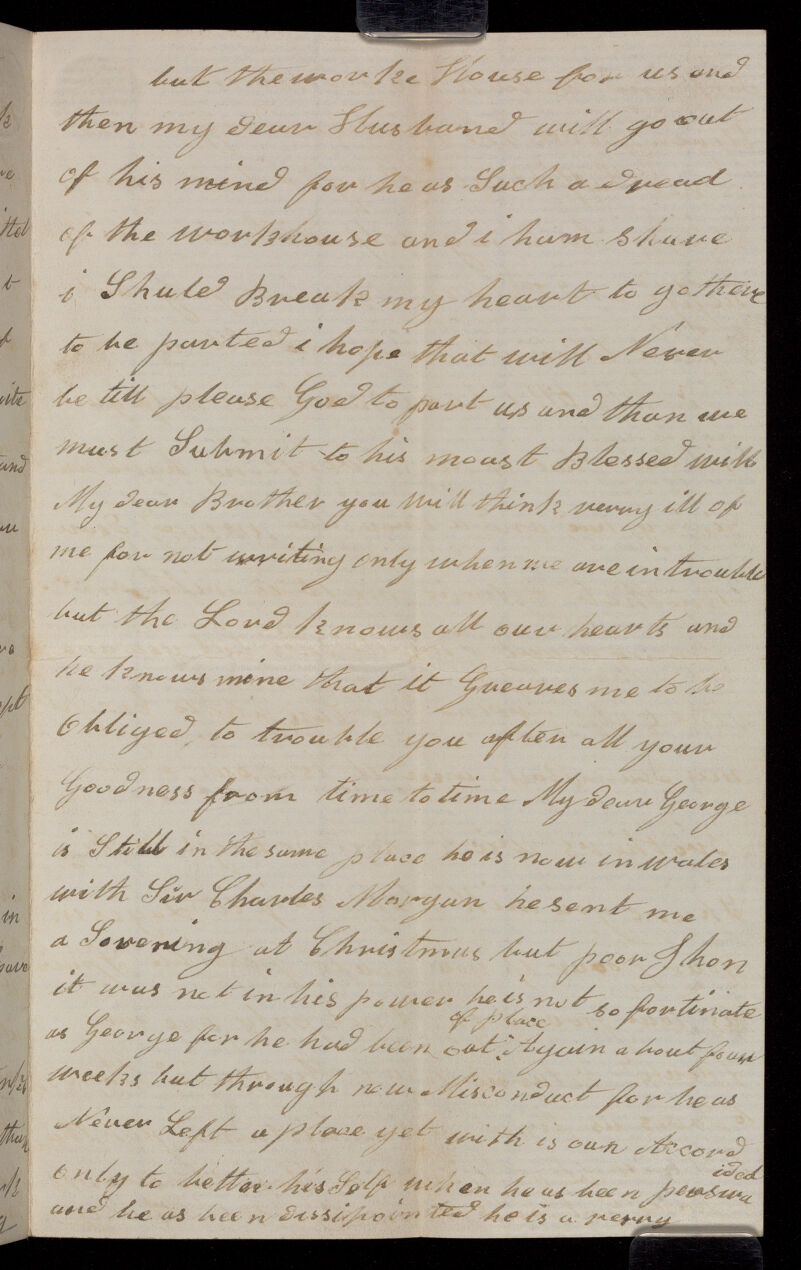 but the worke House for us and
then my dear Husband will go out
of his mind for he as Such a dread
of the workhouse and i ham Shure
i Shuled Break my heart to go there
to be parted i hope that will Never
be till please God to part us and than we
must Submit to his moast Blessed will
My dear Brother you will think verry ill of
me for not writing only when we are in trouble
but the Lord knows all our hearts and
he knows mine that it Greaves me to be
obliged to trouble you after all your
Goodness from time to time My dear George
is Still in the same place he is now in wales
with Sir Charles Morgan he sent me
a Sovering at Christmas but poor Jhon
it was not in his power he is not so fortinate
of place
as George for he had been out Again about four
weeks but through now Misconduct for he as
Never Left a place yet with is own Accord
ided
only to better his Self when he as been perswa
and he as been dissipointed he is a verry